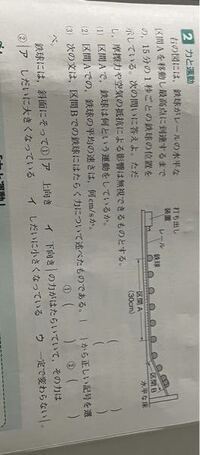 2 力と運動
右の図には，鉄球がレールの水平な
区間Aを移動し最高点に到達するま
の，15分の1秒ごとの鉄球の位置を
示している。次の問いに答えよ。ただ
し，摩擦力や空気の抵抗による影響は無視できるものとする。
(1) 区間Aで，鉄球は何という運動をしているか。
(2) 区間Aでの，鉄球の平均の速さは，何cm/sか。
(3) 次の文は，区間Bでの鉄球にはたらく力について述べたものである。{ }から正しい記号を選
べ。 ①( ) ②( )
鉄球には，斜面にそって①{ア 上向き イ 下向き}の力がはたらいていて，その力は
②{ア しだいに大きくなっている イ しだいに小さくなっている ウ 一定で変わらない}。
打ち出し
装置
レール
鉄球
区間A
(30cm)
区間B
水平な床